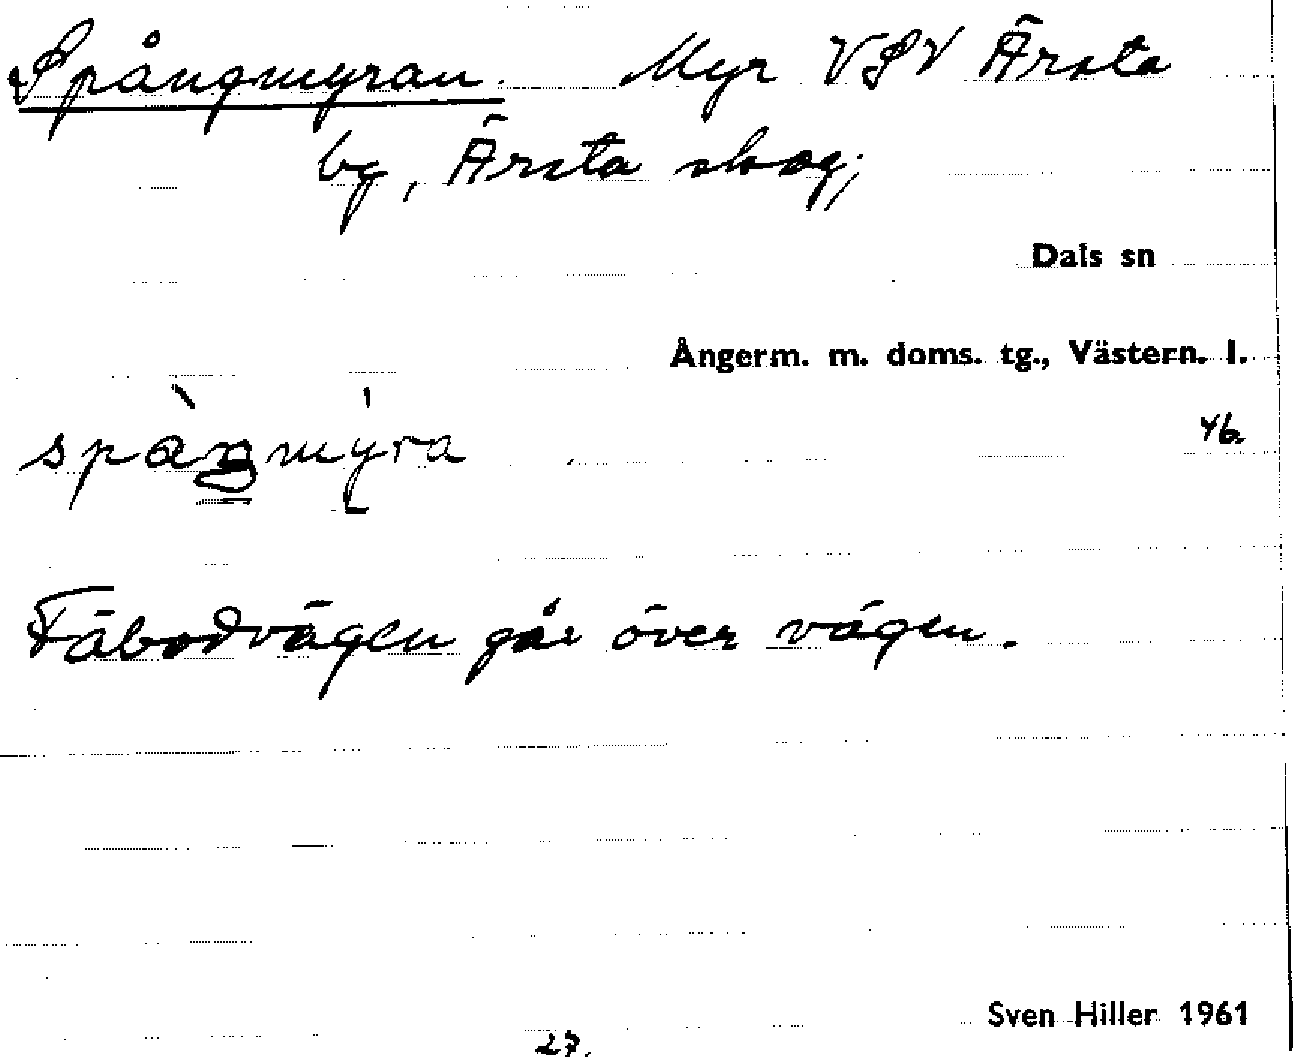 Spångmyran. Myr VSV Ärsta
by, Ärsta skog;
Dals sn
Ångerm. m. doms. tg., Västern. l.
46.
spàŋmy̆ra
Fäbodvägen går över vägen.
Sven Hiller 1961
27.